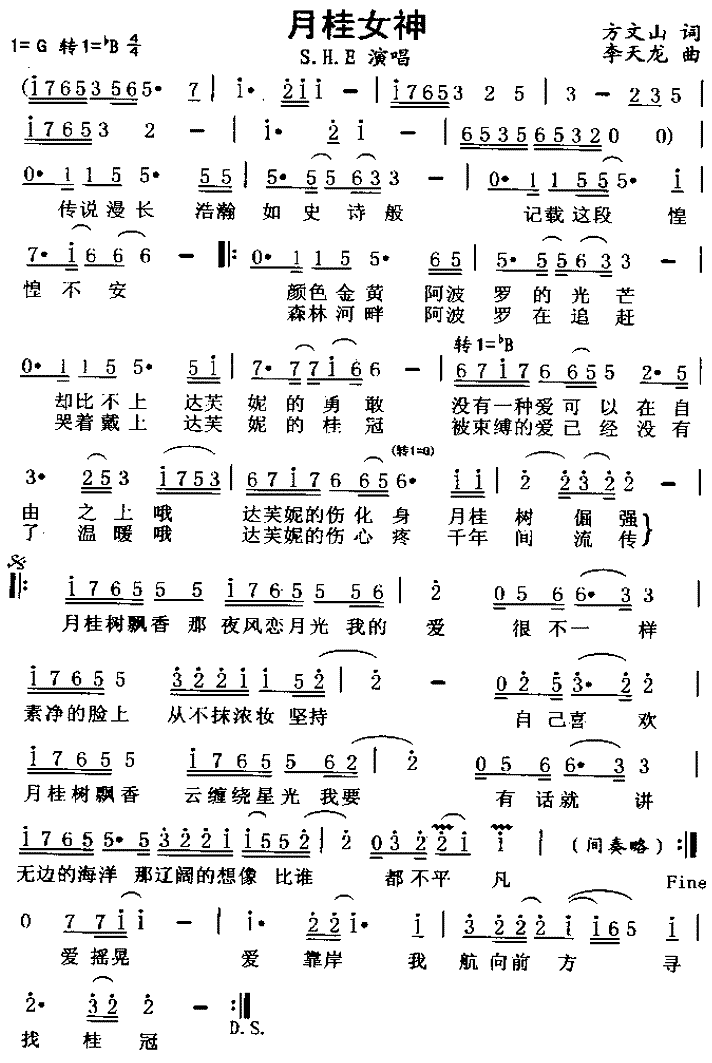 月桂女神
1=G 转1=♭B 4/4
S.H.E 演唱
方文山 词
李天龙 曲
(i76535 65· 7 | i· 2ii – | i7653 2 5 | 3 – 235 |
i7653 2 – | i· 2 i – | 6535653200) |
0· 115 5· 55 | 5· 55 633 – | 0· 1155 5· i |
传说漫长 浩瀚 如史诗般 记载这段 惶
7· i66 6 – ‖: 0· 115 5· 65 | 5· 5563 3 – |
惶不安 颜色金黄 阿波 罗的光芒
森林河畔 阿波 罗在追赶
转1=♭B
0· 115 5· 5i | 7· 77i6 6 – | 67i76 655 2·5 |
却比不上 达芙 妮的勇敢 没有一种爱可以在自
哭着戴上 达芙 妮的桂冠 被束缚的爱已经没有
(转1=G)
3· 253 i753 | 67i76 656· ii | 2 232 2 – |
由 之上哦 达芙妮的伤化身 月桂 树 倔强
了 温暖哦 达芙妮的伤心疼 千年 间 流传
‖: i765 5 5 5 i765 5 56 | 2 056 6·3 3 |
月桂树飘香 那 夜风恋月光 我的 爱 很不一 样
i765 5 322i i 52 | 2 – 025 3·2 2 |
素净的脸上 从不抹浓妆 坚持 自己喜 欢
i765 5 i765 5 62 | 2 056 6·3 3 |
月桂树飘香 云缠绕星光 我要 有话就 讲
i765 5·5 322i i552 | 2 032 2i i (间奏略) :‖
无边的海洋 那辽阔的想像 比谁 都不平 凡 Fine
0 7 7i i – | i· 22 i· i | 3 222 i i65 i |
爱摇晃 爱 靠岸 我 航向前 方 寻
2· 32 2 – :‖
找 桂 冠 D.S.